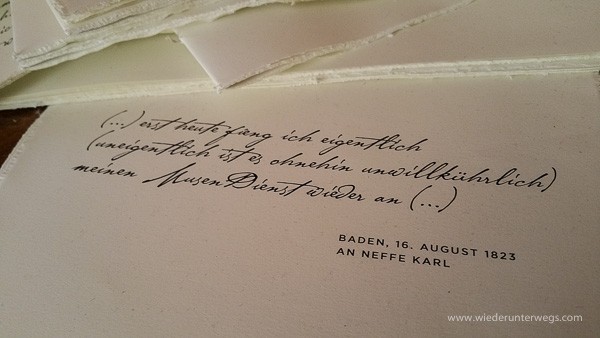 (...) erst heute fieng ich eigentlich
(uneigentlich ist es ohnehin unwillkührlich)
meinen MusenDienst wieder an (...)
BADEN, 16. AUGUST 1823
AN NEFFE KARL
www.wiederunterwegs.com